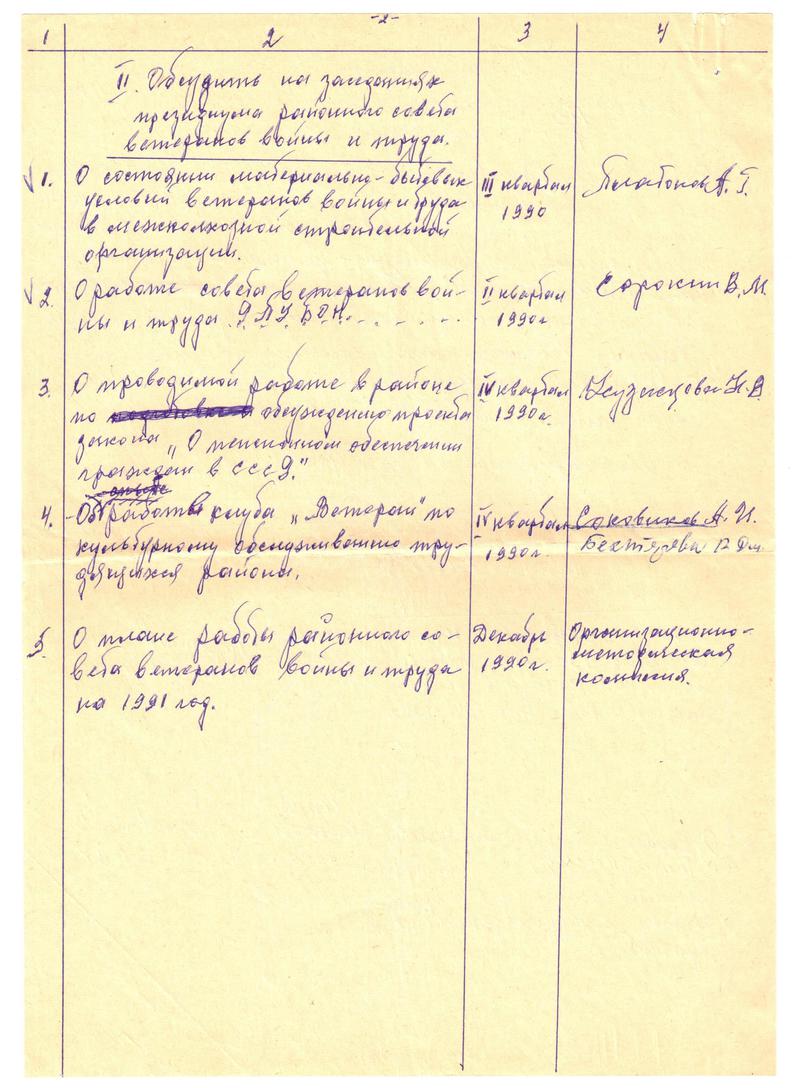 -2-
1 2 3 4
II. Обсудить на заседаниях
президиума районного совета
ветеранов войны и труда.
1. О состоянии материально-бытовых
условий ветеранов войны и труда
в межколхозной строительной
организации.
III квартал
1990
Платонов А. Г.
2. О работе совета ветеранов вой-
ны и труда
II квартал
1990г
Сорокин В. М.
3. О проводимой работе в районе
по обсуждению проекта
закона „О пенсионном обеспечении
граждан в СССР."
IV квартал
1990г.
Кузнецова Н. В.
4. Об работе клуба „Ветеран" по
культурному обслуживанию тру-
дящихся района.
IV квартал
1990г.
Соковиков А. И.
5. О плане работы районного со-
вета ветеранов войны и труда
на 1991 год.
Декабрь
1990г.
Организационно-
методическая
комиссия.